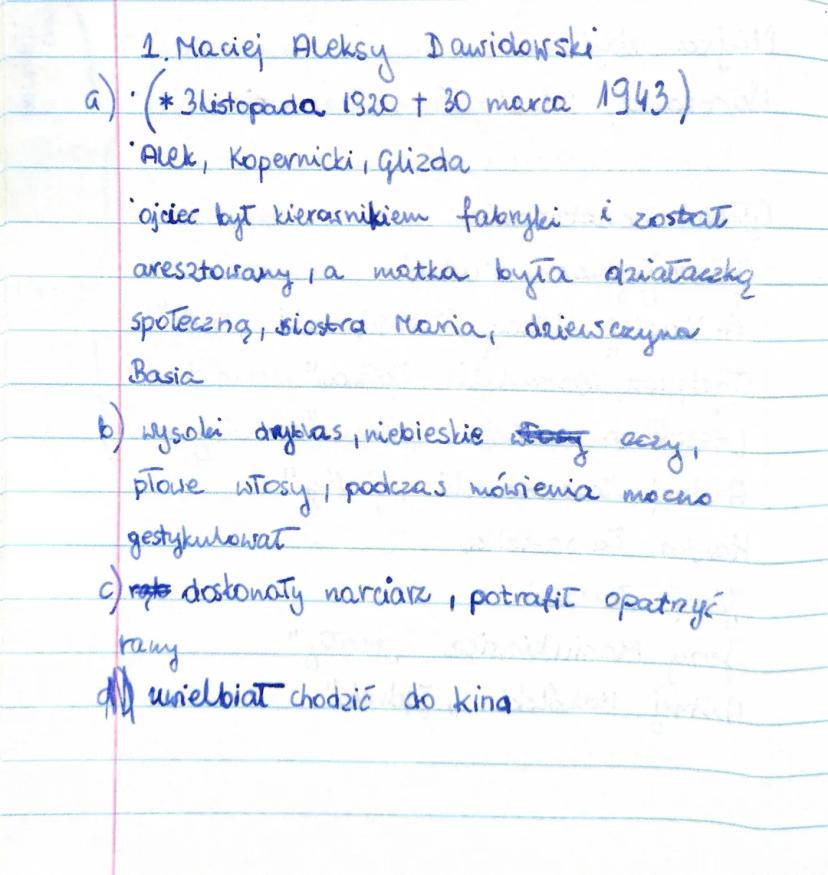 1. Maciej Aleksy Dawidowski
a) • (* 3 listopada 1920 † 30 marca 1943)
• Alek, Kopernicki, Glizda
• ojciec był kierownikiem fabryki i został
aresztowany, a matka była działaczką
społeczną, siostra Maria, dziewczyna
Basia
b) wysoki dryblas, niebieskie włosy oczy,
płowe włosy, podczas mówienia mocno
gestykulował
c) doskonały narciarz, potrafił opatrzyć
rany
d) uwielbiał chodzić do kina